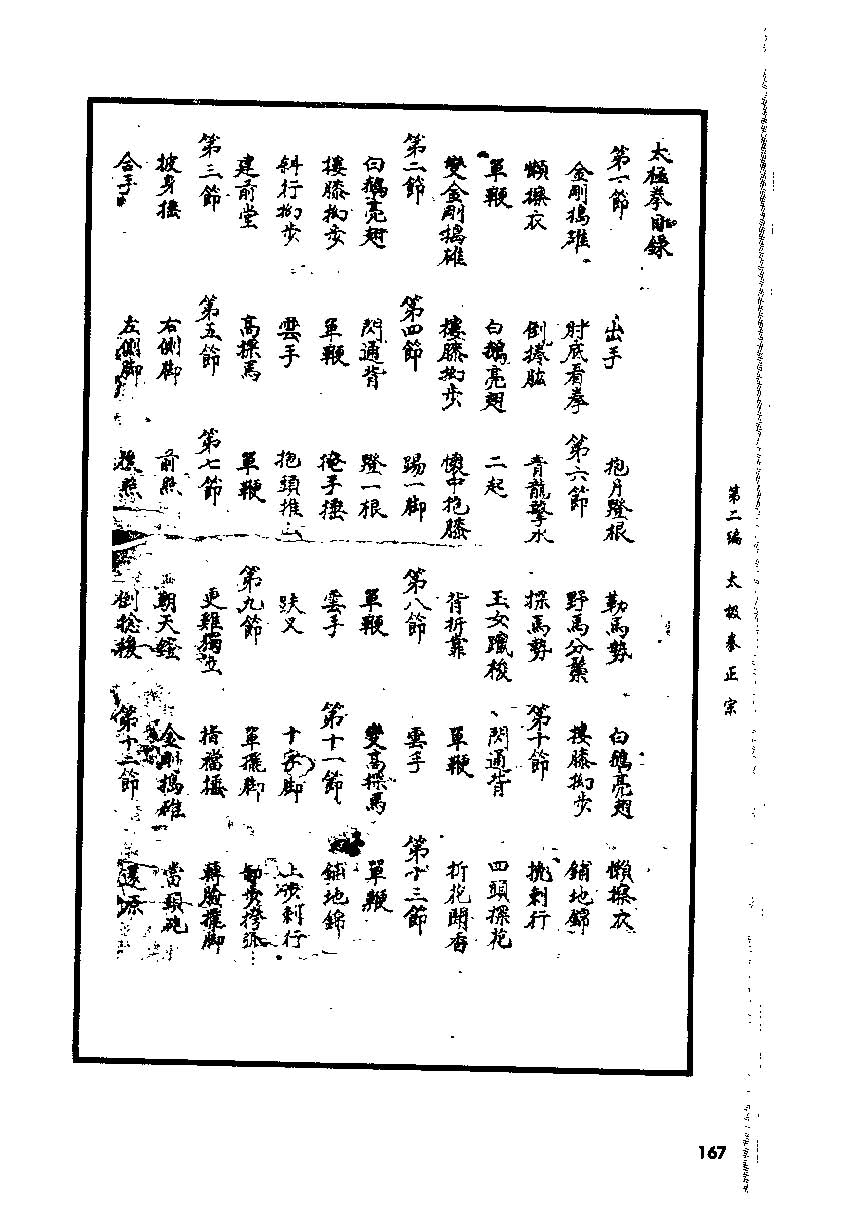 太極拳目錄
第一節
金剛搗碓
懶擦衣
單鞭
變金剛搗碓
第二節
白鵝亮翅
摟膝拗步
斜行拗步
建前堂
第三節
披身捶
合手
出手
肘底看拳
倒捲肱
白鵝亮翅
摟膝拗步
第四節
閃通背
單鞭
雲手
高探馬
第五節
右側脚
左側脚
抱月蹬根
第六節
青龍擎水
二起
懷中抱膝
踢一脚
蹬一根
掩手捶
抱頭推山
單鞭
第七節
前照
後照
勒馬勢
野馬分鬃
探馬勢
玉女躥梭
背折靠
第八節
單鞭
雲手
跌叉
第九節
更雞獨立
朝天蹬
倒捻猴
白鵝亮翅
摟膝拗步
第十節
閃通背
單鞭
雲手
變高探馬
第十一節
十字脚
單擺脚
指襠捶
金剛搗碓
第十二節
懶擦衣
鋪地錦
挽刺行
四頭探花
折花聞香
第十三節
單鞭
鋪地錦
上步刺行
轉臉擺脚
當頭砲
還原
第二編 太极拳正宗
167